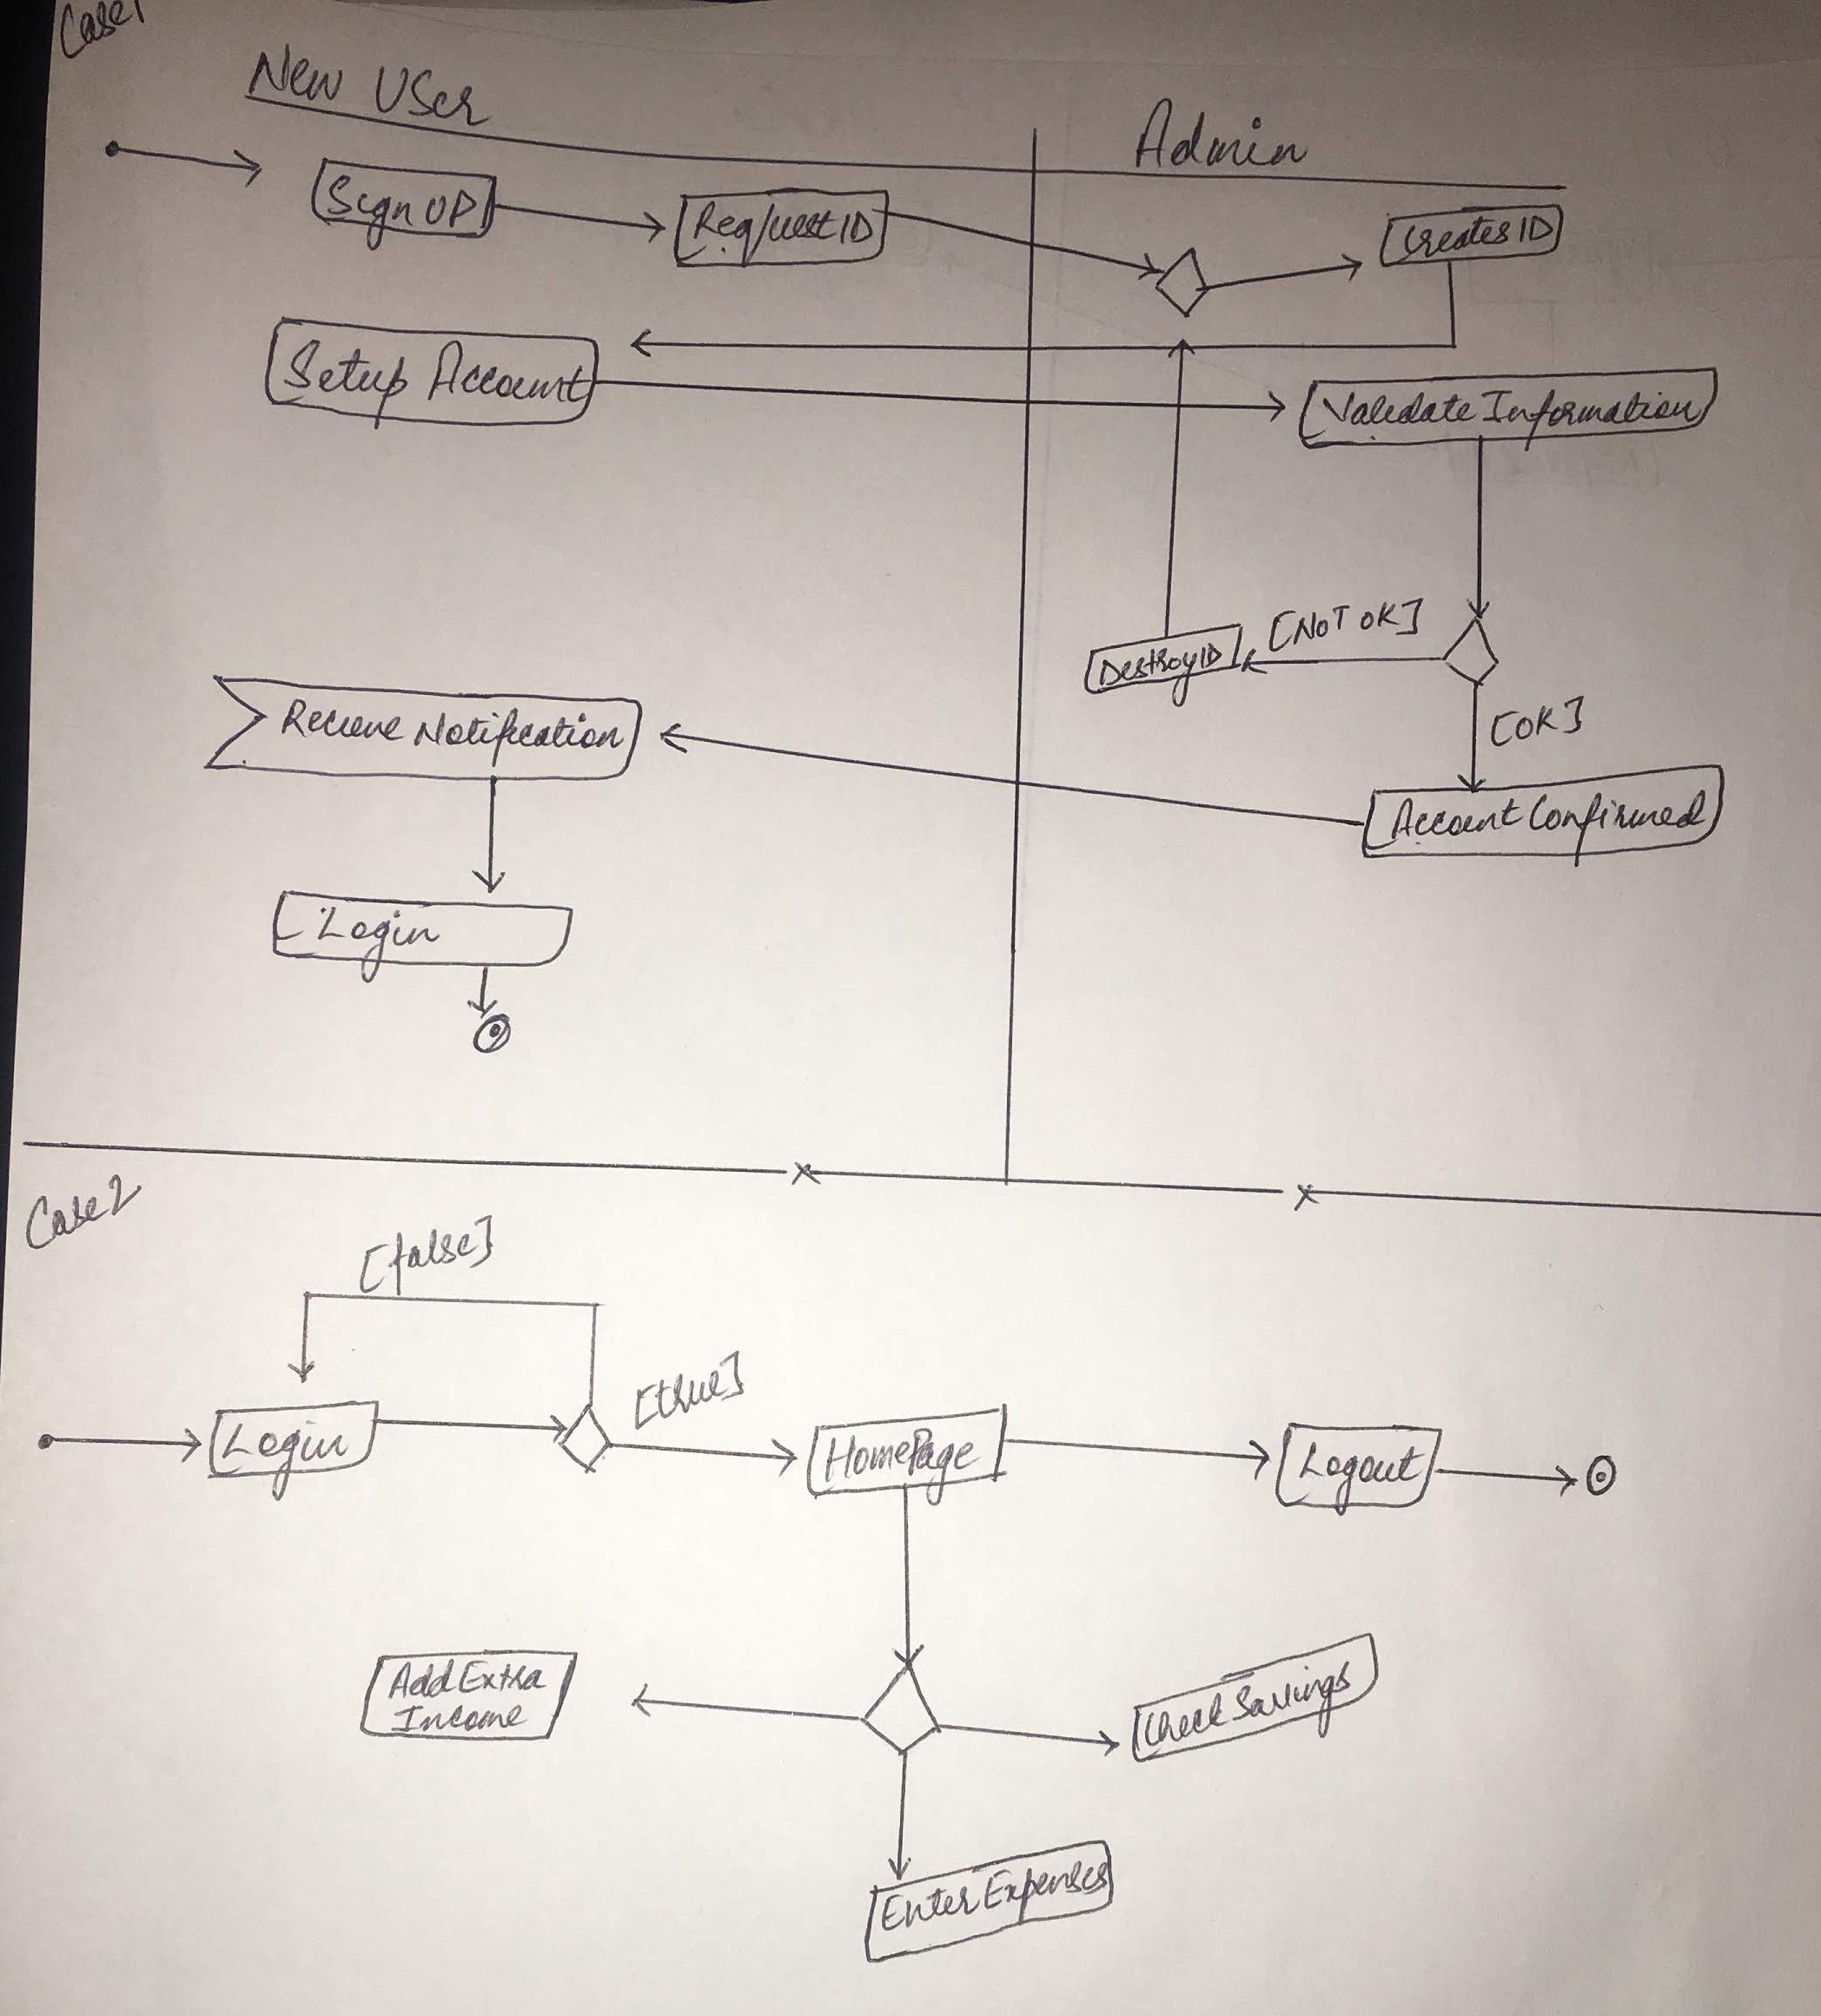 Case1
New User
Admin
SignUP
RequestID
CreatesID
Setup Account
Validate Information
[NOT OK]
DestroyID
[OK]
Recieve Notification
Account Confirmed
Login
Case2
[false]
[true]
Login
HomePage
Logout
Add Extra
Income
Check Savings
Enter Expenses